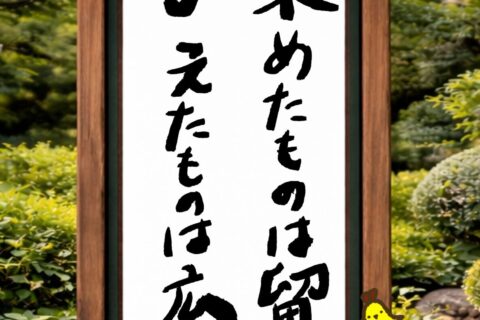 求めたものは留
えたものは広